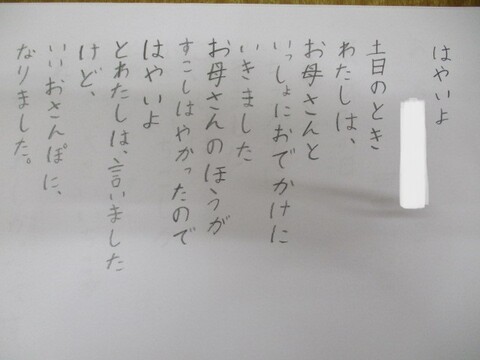 はやいよ
土日のとき
わたしは、
お母さんと
いっしょにおでかけに
いきました
お母さんのほうが
すこしはやかったので
はやいよ
とわたしは、言いました
けど、
いいおさんぽに、
なりました。